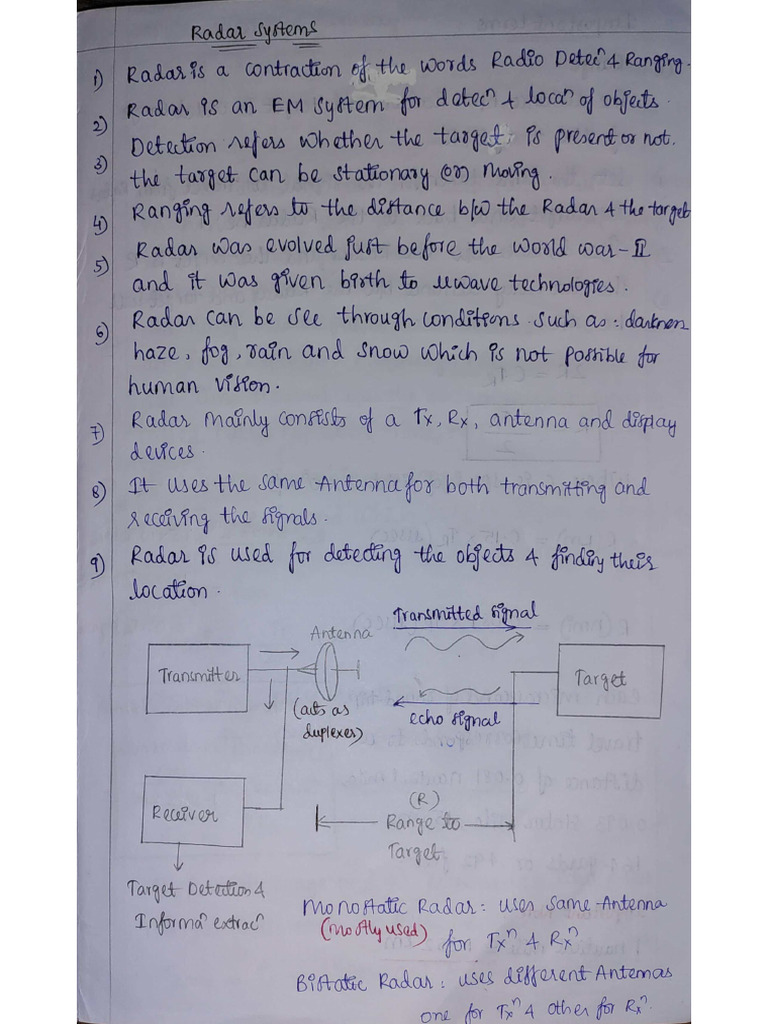 Radar Systems
1) Radar is a contraction of the words Radio Detecⁿ & Ranging.
2) Radar is an EM System for detecⁿ & locaⁿ of objects.
3) Detection refers whether the target is present or not.
the target can be stationary (or) moving.
4) Ranging refers to the distance b/w the Radar & the target
5) Radar was evolved just before the world war-II
and it was given birth to μwave technologies.
6) Radar can be see through conditions such as: darkness
haze, fog, rain and snow which is not possible for
human vision.
7) Radar mainly consists of a Tx, Rx, antenna and display
devices.
8) It uses the same Antenna for both transmitting and
receiving the signals.
9) Radar is used for detecting the objects & finding their
location.
Transmitted signal
Antenna
Transmitter
Target
(acts as
duplexer)
echo signal
Receiver
(R)
Range to
Target
Target Detection &
Informaⁿ extracⁿ
Monostatic Radar: uses same Antenna
(mostly used)
for Txⁿ & Rxⁿ
Bistatic Radar: uses different Antennas
one for Txⁿ & other for Rxⁿ.